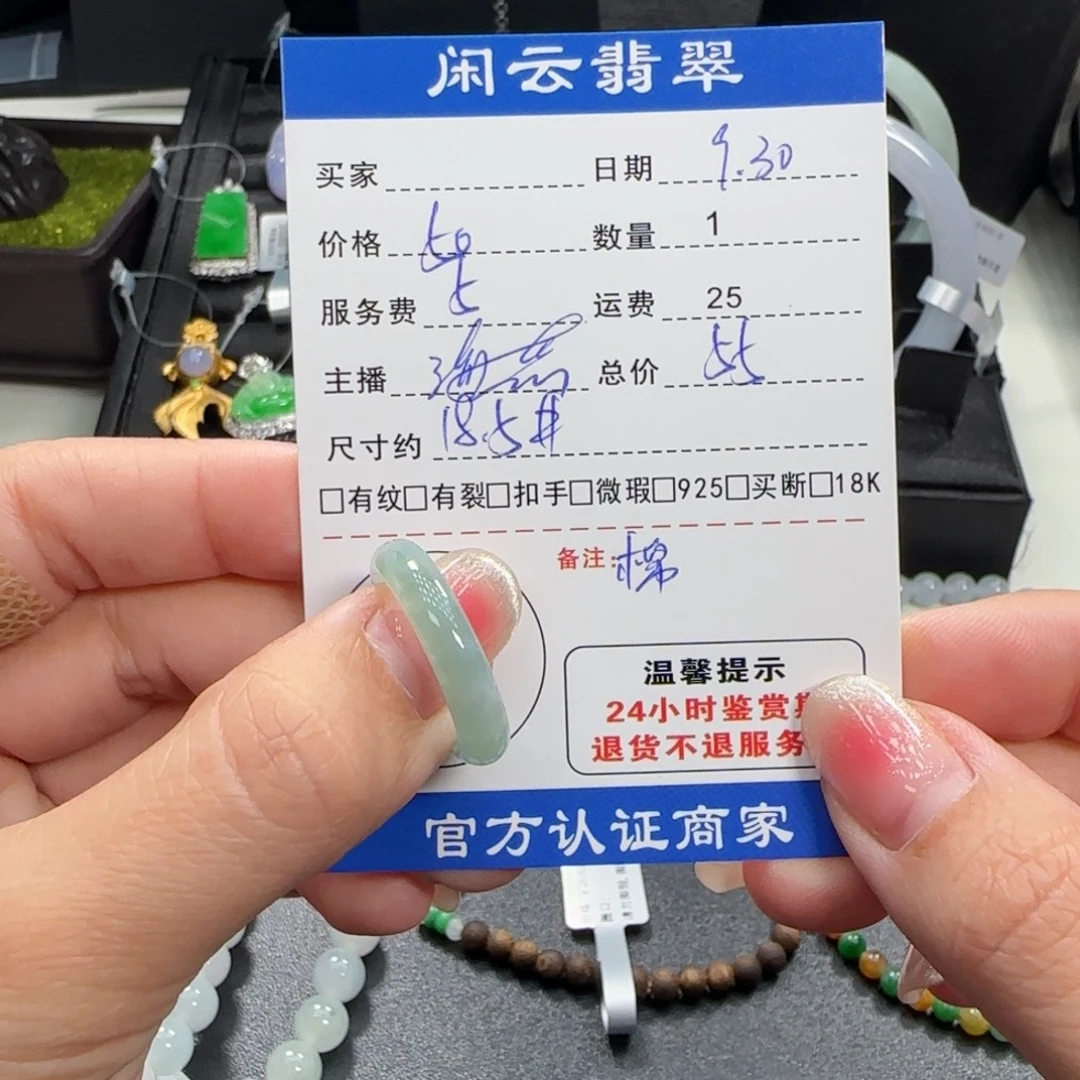 闲云翡翠
买家 日期 9.30
价格 50 数量 1
服务费 5 运费 25
主播 海燕 总价 55
尺寸约 18.5#
□有纹□有裂□扣手□微瑕□925□买断□18K
备注: 棉
温馨提示
24小时鉴赏
退货不退服务
官方认证商家